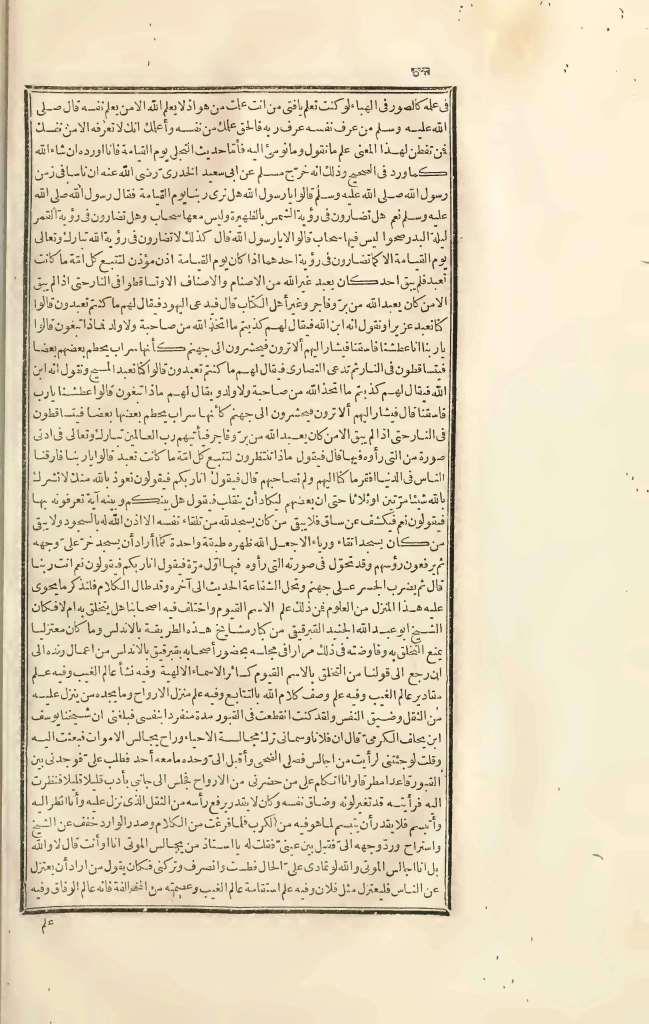 ٤٥
فى عمله كالصور فى الهباء لو كنت تعلم يا فتى من انت علمت من هو اذ لا يعلم الله الا من يعلم نفسه قال صلى
الله عليه وسلم من عرف نفسه عرف ربه فالحق علمك من نفسه وأعلمك انك لا تعرفه الا من نفسك
فمن تفطن لهذا المعنى علم ما نقول وما نومئ اليه فأما حديث التجلى يوم القيامة فانا اورده ان شاء الله
كما ورد فى الصحيح وذلك انه خرّج مسلم عن ابى سعيد الخدرى رضى الله عنه ان ناسا فى زمن
رسول الله صلى الله عليه وسلم قالوا يا رسول الله هل نرى ربنا يوم القيامة فقال رسول الله صلى الله
عليه وسلم نعم هل تضارون فى رؤية الشمس بالظهيرة وليس معها سحاب وهل تضارون فى رؤية القمر
ليلة البدر صحوا ليس فيها سحاب قالوا لا يا رسول الله قال كذلك لا تضارون فى رؤية الله تبارك وتعالى
يوم القيامة الا كما تضارون فى رؤية احدهما اذا كان يوم القيامة اذن مؤذن لتتبع كل امّة ما كانت
تعبد فلا يبقى احد كان يعبد غير الله من الاصنام والاصناف الا وتساقطوا فى النار حتى اذا لم يبق
الا من كان يعبد الله من برّ وفاجر وغير أهل الكتاب قال فيدعى اليهود فيقال لهم ما كنتم تعبدون قالوا
كنا نعبد عزيرا ونقول انه ابن الله فيقال لهم كذبتم ما اتخذ الله من صاحبة ولا ولد فماذا تبغون قالوا
يا ربنا انا عطشنا فاسقنا فيشار اليهم ألا ترون فيحشرون الى جهنم كأنها سراب يحطم بعضهم بعضا
فيتساقطون فى النار ثم تدعى النصارى فيقال لهم ما كنتم تعبدون قالوا كنا نعبد المسيح ونقول انه ابن
الله فيقال لهم كذبتم ما اتخذ الله من صاحبة ولا ولد ويقال لهم ماذا تبغون قالوا عطشنا يا رب
فاسقنا قال فيشار اليهم ألا ترون فيحشرون الى جهنم كأنها سراب يحطم بعضها بعضا فيتساقطون
فى النار حتى اذا لم يبق الا من كان يعبد الله من برّ وفاجر فيأتيهم رب العالمين تبارك وتعالى فى ادنى
صورة من التى رأوه فيها قال فيقول ماذا تنتظرون لتتبع كل امّة ما كانت تعبد قالوا يا ربنا فارقنا
الناس فى الدنيا افقر ما كنا اليهم ولم نصاحبهم قال فيقول انا ربكم فيقولون نعوذ بالله منك لا نشرك
بالله شيئا مرّتين او ثلاثا حتى ان بعضهم ليكاد أن ينقلب فيقول هل بينكم وبينه آية تعرفونه بها
فيقولون نعم فيكشف عن ساق فلا يبقى من كان يسجد لله من تلقاء نفسه الا اذن الله له بالسجود ولا يبقى
من كان يسجد اتقاء ورياء الا جعل الله ظهره طبقة واحدة كلما أراد أن يسجد خرّ على وجهه
ثم يرفعون رؤسهم وقد تحوّل فى صورته التى رأوه فيها اوّل مرّة فيقول انا ربكم فيقولون نعم انت ربنا
قال ثم يضرب الجسر على جهنم وتحل الشفاعة الحديث الى آخره وقد طال الكلام فلنذكر ما يحوى
عليه هذا المنزل من العلوم فمن ذلك علم الاسم القيوم واختلف فيه اصحابنا هل يتخلق به ام لا فكان
الشيخ ابو عبد الله الجنيد القبرفيقى من كبار مشايخ هذه الطريقة بالاندلس وما كان معتزليا
يمنع التخلق به وفاوضته فى ذلك مرارا فى مجلسه بحضور أصحابه بقبرفيق بالاندلس من اعمال رنده الى
ان رجع الى قولنا من التخلق بالاسم القيوم كسائر الاسماء الالهية وفيه نشأ عالم الغيب وفيه علم
مقادير عالم الغيب وفيه علم وصف كلام الله بالتتابع وفيه علم منزل الارواح وما يجده من ينزل عليه
من الثقل وضيق النفس ولقد كنت انقطعت فى القبور مدة منفردا بنفسى فبلغنى ان شيخنا يوسف
ابن يخلف الكومى قال ان فلانا وسمانى ترك مجالسة الاحياء وراح يجالس الاموات فبعثت اليه
وقلت لو جئتنى لرأيت من اجالس فصلى الضحى وأقبل الىّ وحده ما معه أحد فطلب علىّ فوجدنى بين
القبور قاعدا مطرقا وانا اتكلم على من حضرنى من الارواح فجلس الى جانبى بأدب قليلا قليلا فنظرت
اليه فرأيته قد تغير لونه وضاق نفسه وكان لا يقدر يرفع رأسه من الثقل الذى نزل عليه وأنا انظر اليه
وأتبسم فلا يقدر أن يتبسم لما هو فيه من الكرب فلما فرغت من الكلام وصدر الوارد خفف عن الشيخ
واستراح وردّ وجهه الىّ فقبل بين عينىّ فقلت له يا استاذ من يجالس الموتى انا او أنت قال لا والله
بل انا اجالس الموتى والله لو تمادى علىّ الحال فطست وانصرف وتركنى فكان يقول من اراد أن يعتزل
عن الناس فليعتزل مثل فلان وفيه علم استقامة عالم الغيب وعصمته من المخالفة فانه عالم الوفاق وفيه
علم